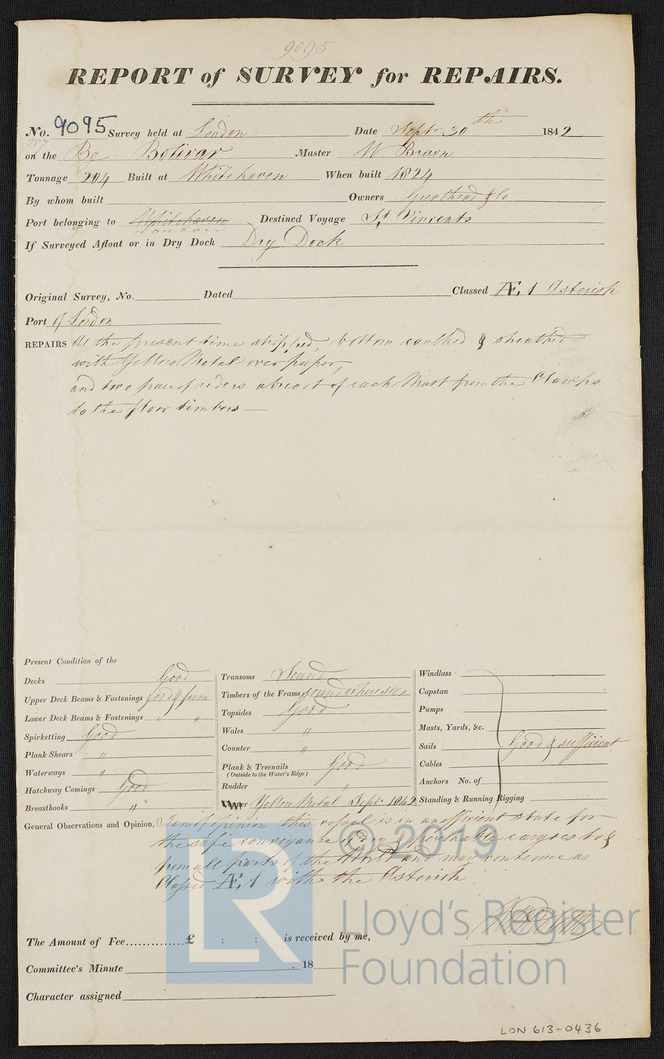 9095
REPORT of SURVEY for REPAIRS.
No. 9095 Survey held at London Date Sept. 30th 1842
on the Be Bolivar Master W Brown
Tonnage 204 Built at Whitehaven When built 1824
By whom built Owners Greathead & Co
Port belonging to Whitehaven Destined Voyage St Vincents
London
If Surveyed Afloat or in Dry Dock Dry Dock
Original Survey, No. Dated Classed Æ 1 Asterisk
Port of London
REPAIRS At the present time stripped, bottom caulked & sheathed
with Yellow Metal over paper,
and two pair of riders abreast of each Mast from the Clamps
to the floor timbers
Present Condition of the
Decks Good
Upper Deck Beams & Fastenings Good & firm
Lower Deck Beams & Fastenings " "
Spirketting Good
Plank Shears "
Waterways "
Hatchway Comings Good
Breasthooks "
Transoms Sound
Timbers of the Frame sound
Topsides Good
Wales "
Counter "
Plank & Treenails Good
(Outside to the Water's Edge)
Rudder "
Yellow Metal Sept. 1842
Windlass
Capstan
Pumps
Masts, Yards, &c.
Sails Good & sufficient
Cables
Anchors No. of
Standing & Running Rigging
General Observations and Opinion, I am of opinion this vessel is in an efficient state for
the safe conveyance of dry & perishable cargoes to &
from all parts of the World and may continue as
Classed Æ 1 with the Asterisk
The Amount of Fee.............£ : : is received by me,
Committee's Minute 18
Character assigned
© 2019
LR
Lloyd's Register
Foundation
LON 613-0436